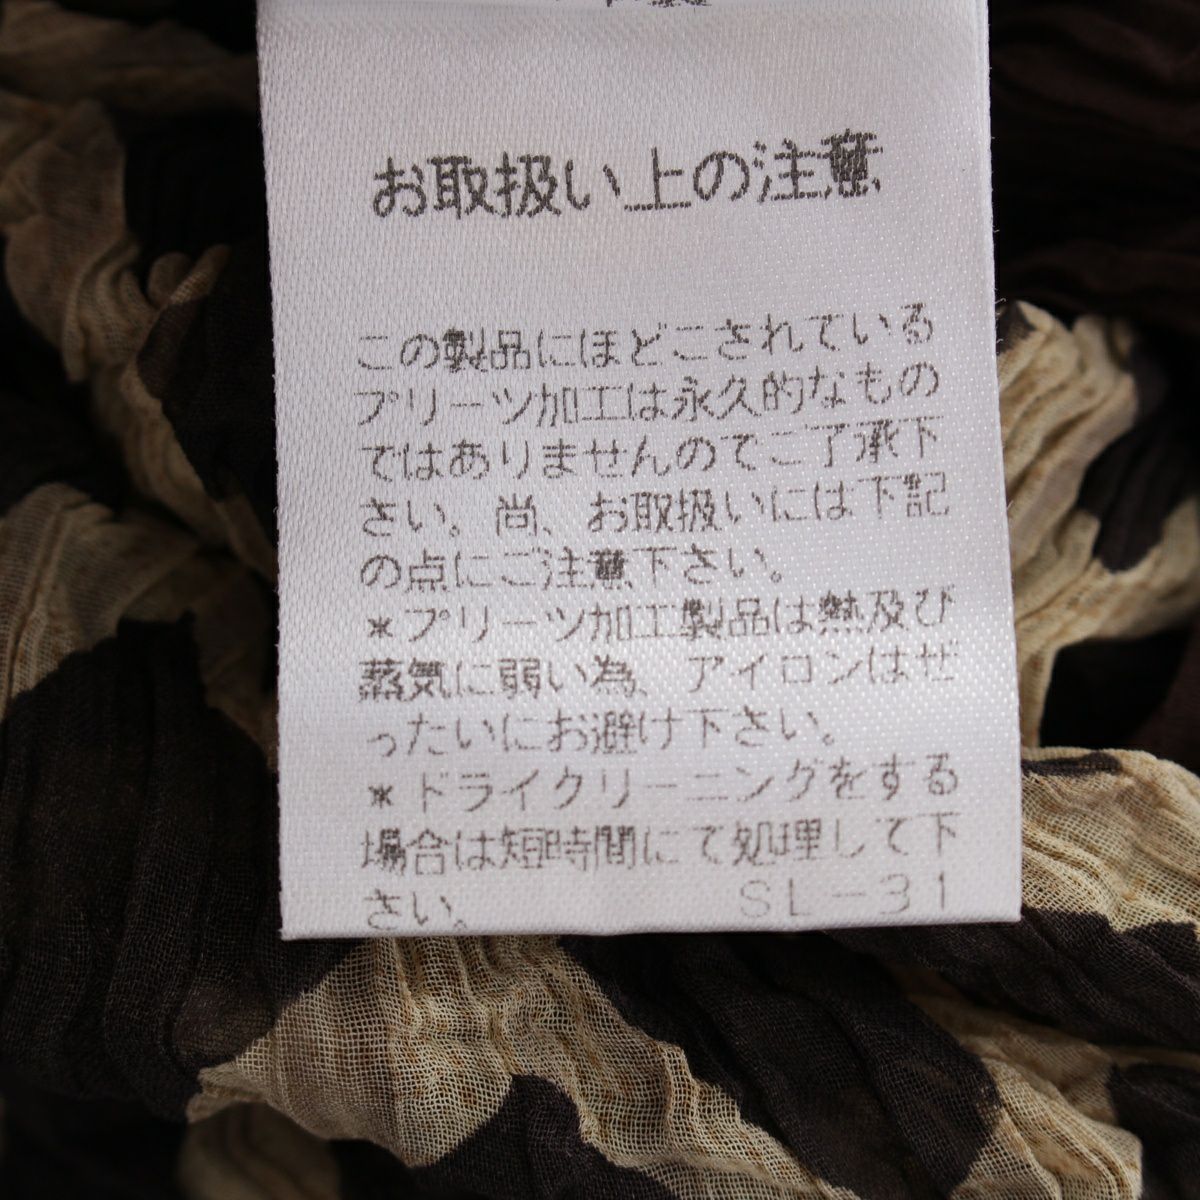 お取扱い上の注意
この製品にほどこされている
プリーツ加工は永久的なもの
ではありませんのでご了承下
さい。尚、お取扱いには下記
の点にご注意下さい。
*プリーツ加工製品は熱及び
蒸気に弱い為、アイロンはぜ
ったいにお避け下さい。
*ドライクリーニングをする
場合は短時間にて処理して下
さい。 SL-31